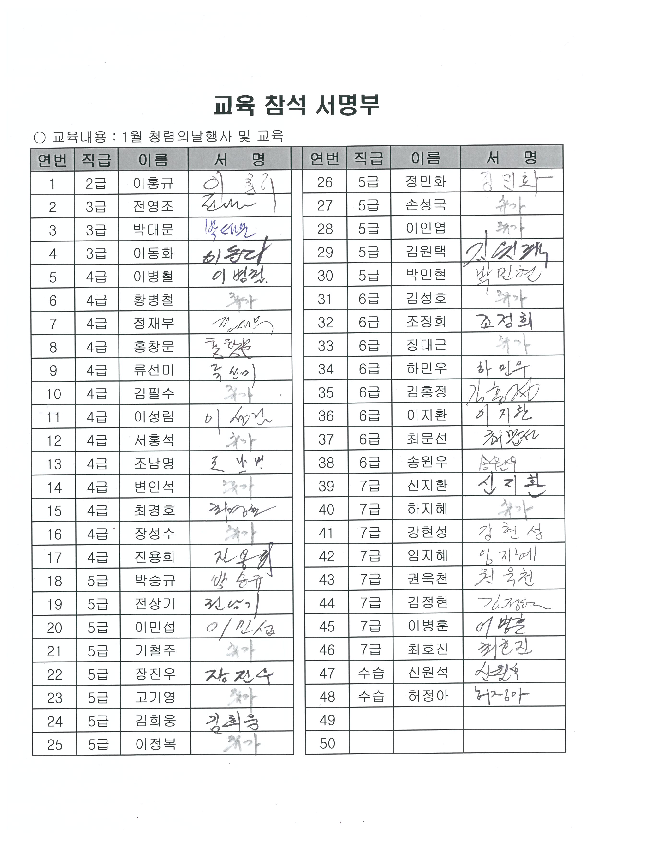 교육 참석 서명부
○ 교육내용 : 1월 청렴의날행사 및 교육
연번 직급 이름 서 명
1 2급 이홍규
2 3급 전영조
3 3급 박대문
4 3급 이동화
5 4급 이병철 이병철
6 4급 황병철 휴가
7 4급 정재부
8 4급 홍창문
9 4급 류선미
10 4급 김필수 휴가
11 4급 이성림
12 4급 서홍석 휴가
13 4급 조남명
14 4급 변인석 휴가
15 4급 최경호
16 4급 장성수 휴가
17 4급 진용희
18 5급 박승규 박승규
19 5급 전상기 전상기
20 5급 이민섭 이민섭
21 5급 기철주 휴가
22 5급 장진우
23 5급 고기영 휴가
24 5급 김희웅 김희웅
25 5급 이정복 휴가
연번 직급 이름 서 명
26 5급 정민화
27 5급 손성국 휴가
28 5급 이인엽 휴가
29 5급 김원택 김원택
30 5급 박민현 박민현
31 6급 김성호 휴가
32 6급 조정희 조정희
33 6급 장대근 휴가
34 6급 하민우 하민우
35 6급 김홍정
36 6급 이지환 이지환
37 6급 최문선
38 6급 송원우 송원우
39 7급 신지환 신지환
40 7급 하지혜 휴가
41 7급 강현성 강현성
42 7급 임지혜 임지혜
43 7급 권옥천 권옥천
44 7급 김정현
45 7급 이병훈 이병훈
46 7급 최호신
47 수습 신원석
48 수습 허정아 허정아
49
50